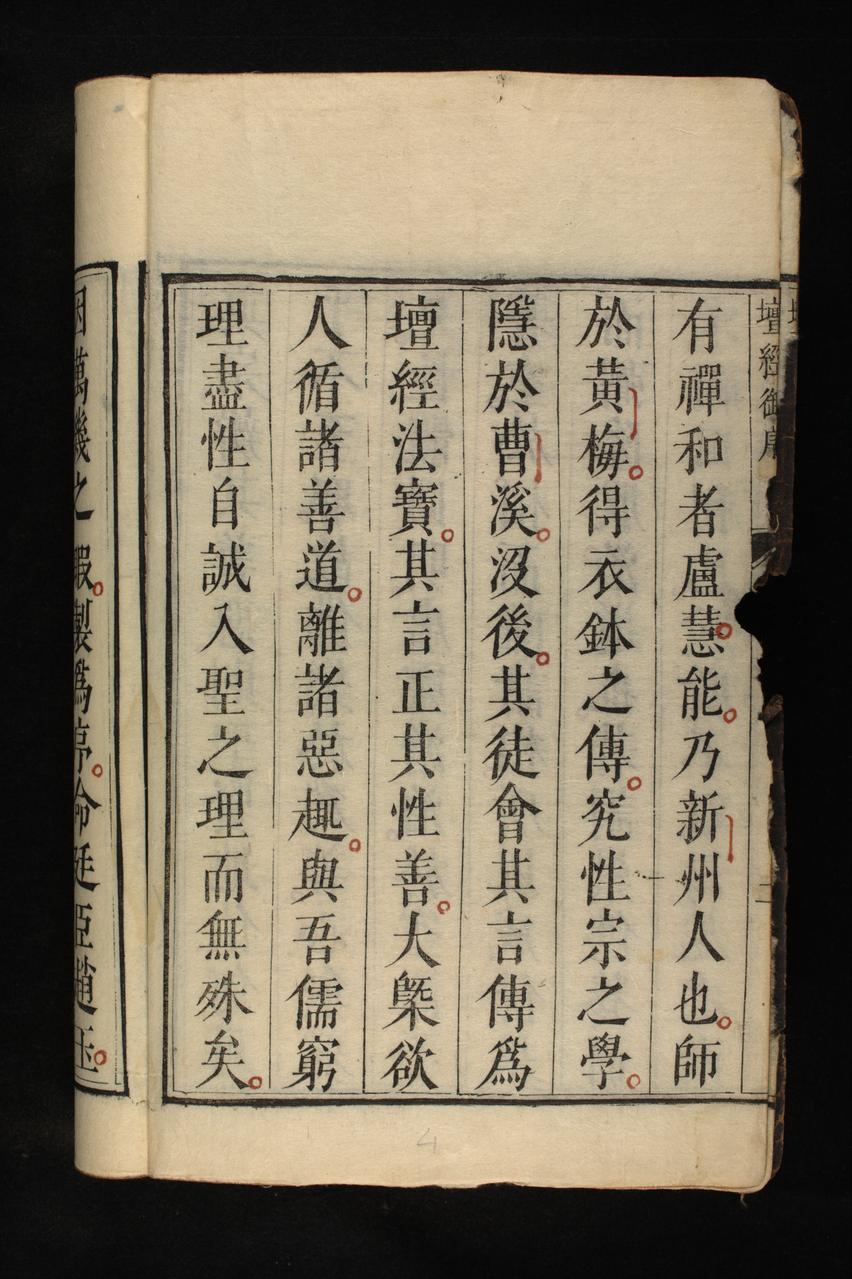 壇經御序
有禪和者盧慧能乃新州人也師
於黃梅得衣鉢之傳究性宗之學
隱於曹溪沒後其徒會其言傳爲
壇經法寶其言正其性善大槩欲
人循諸善道離諸惡趣與吾儒窮
理盡性自誠入聖之理而無殊矣
因萬機之暇製爲序命廷臣趙玉
4